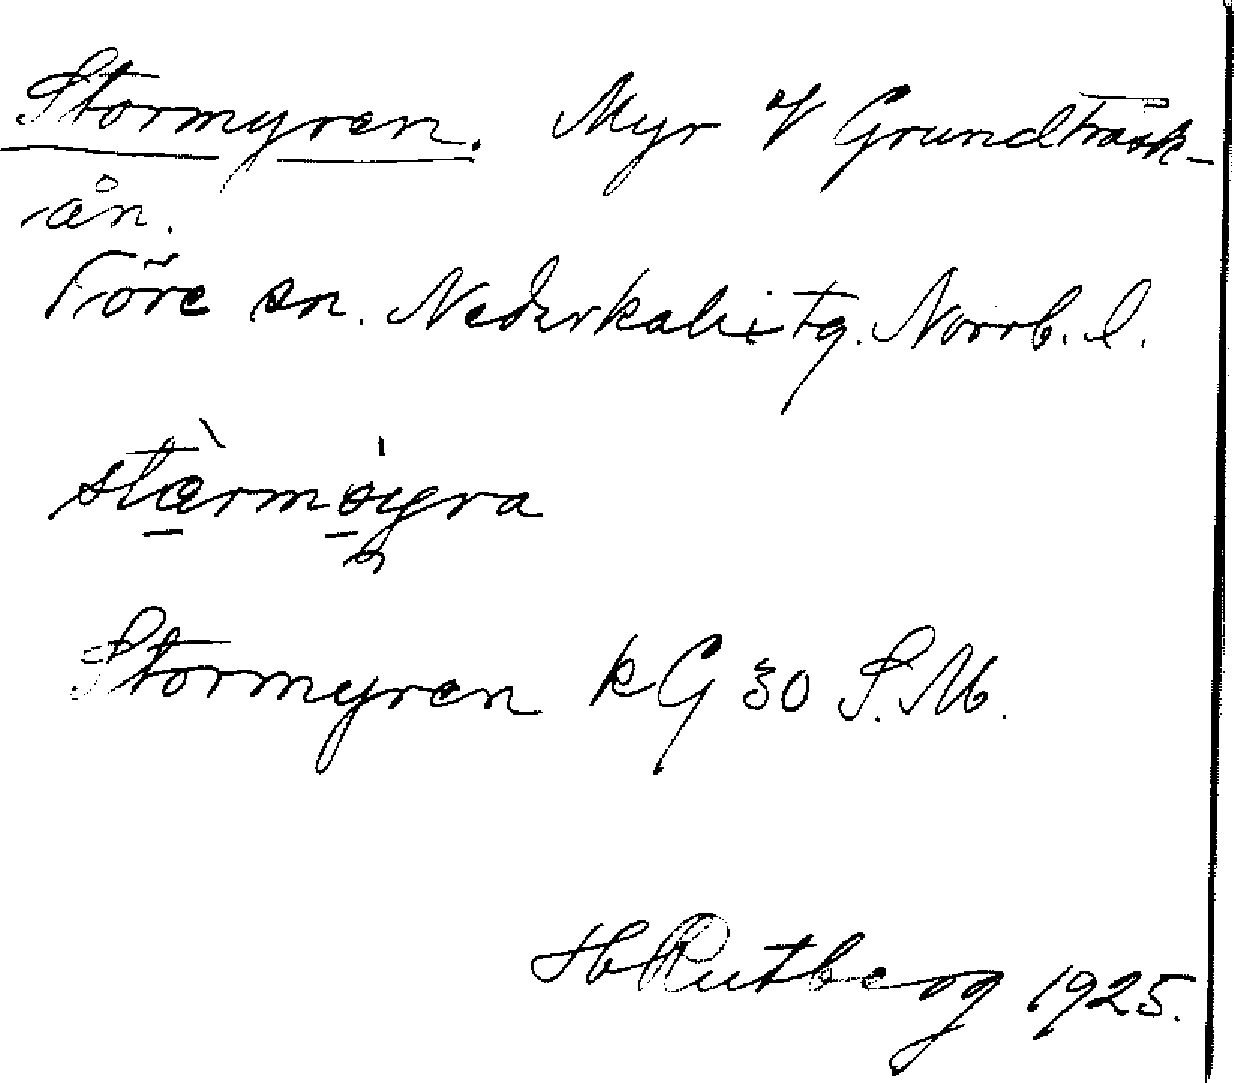 Stormyren. Myr V Grundträsk-
ån.
Töre sn. Nederkalix tg. Norrb. l.
stàrmøyra
Stormyren kG 30 S.M.
H Rutberg 1925.